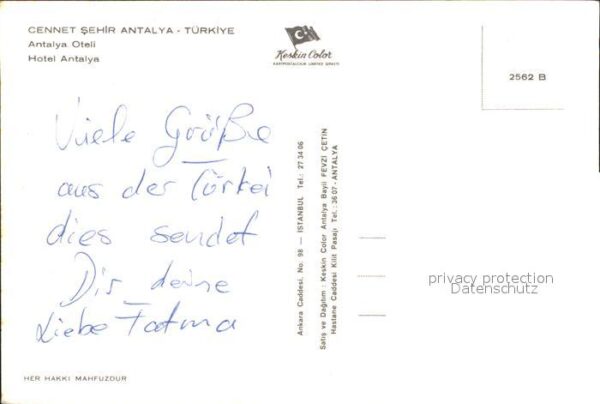 CENNET ŞEHİR ANTALYA - TÜRKİYE
Antalya Oteli
Hotel Antalya
Keskin Color
KARTPOSTALCILIK LIMITED ŞİRKETİ
2562 B
Viele Grüße
aus der Türkei
dies sendet
Dir deine
Liebe Fatma
Ankara Caddesi. No. 98 — İSTANBUL Tel.: 27 34 06
Satış ve Dağıtım : Keskin Color Antalya Bayii FEVZİ ÇETİN
Hastane Caddesi Kilit Pasajı Tel.: 3607 - ANTALYA
privacy protection
Datenschutz
HER HAKKI MAHFUZDUR